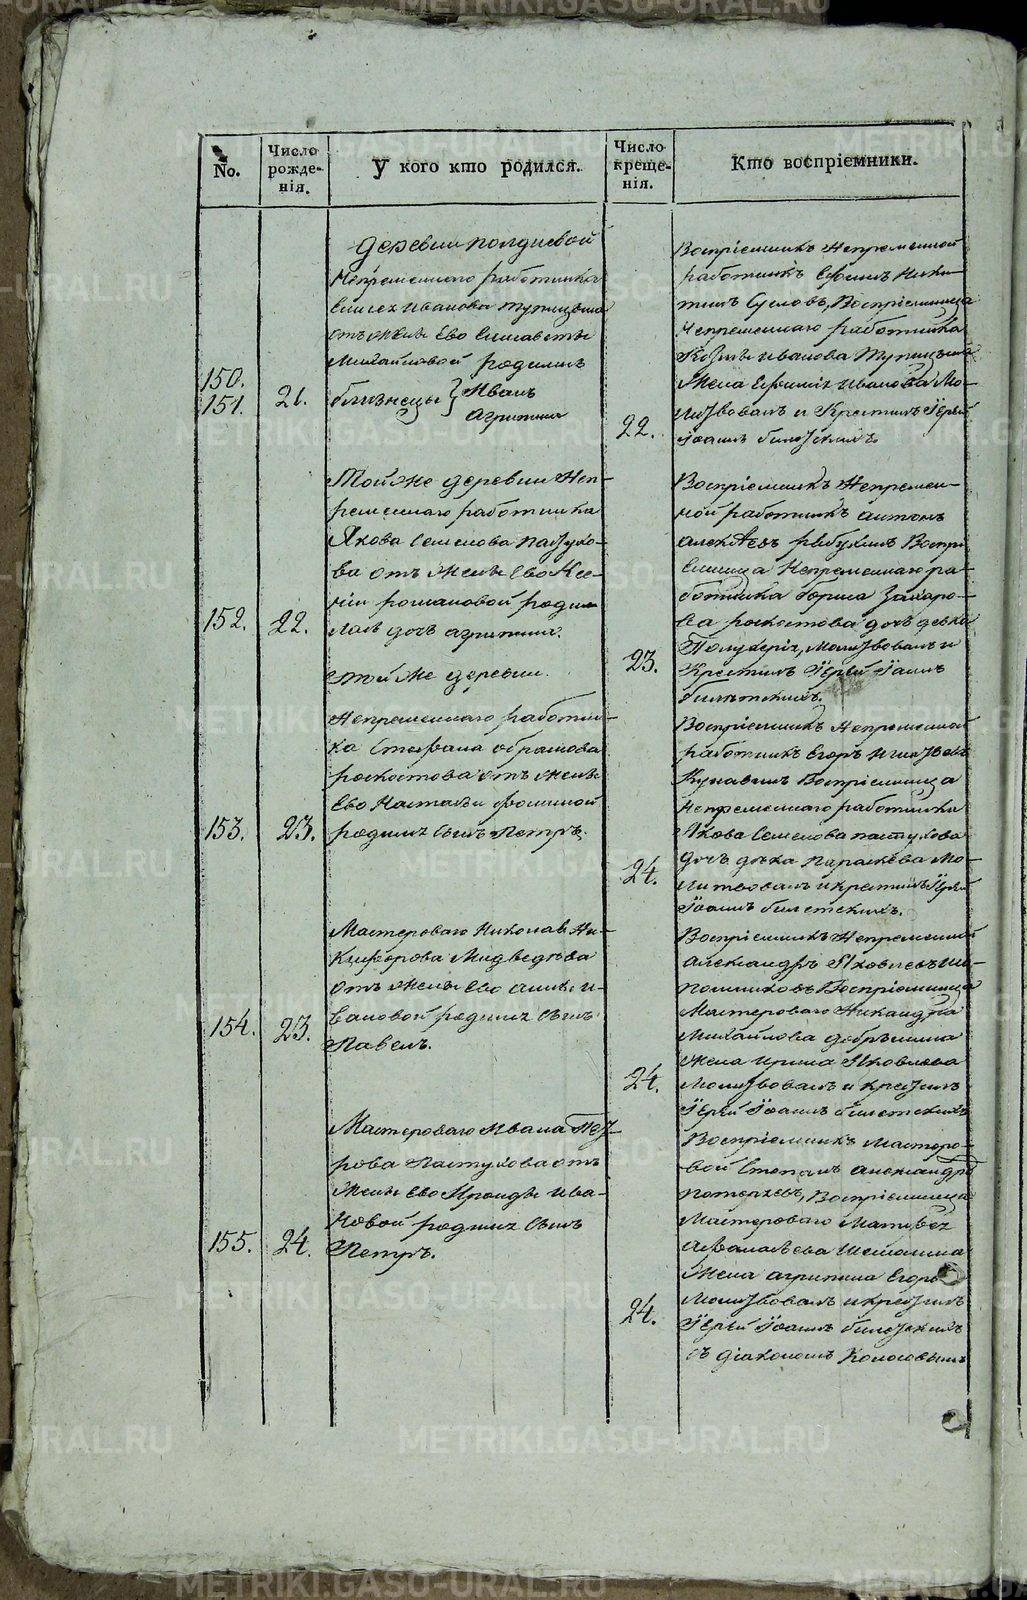 No.
Число рожде-
нія.
У кого кто родился.
Число креще-
нія.
Кто воспріемники.
150.
151.
21.
Деревни полдневой
Непременнаго работника
Елисея Иванова Тупицына
отъ жены Ево Елисаветы
Михайловой родились
близнецы Иванъ
Агрипина
22.
Воспріемникъ Непременной
работникъ Ефимъ Ники-
тинъ Сусловъ, Воспріемница
Непременнаго работника
Козмы Иванова Тупицына
Жена Ефимія Иванова Мо-
литвовалъ и Крестилъ Іерей
Іоаннъ билетскихъ.
152.
22.
Той же деревни Неп-
ременнаго работника
Якова Семенова Пастухо-
ва отъ жены Ево Ксе-
ніи романовой роди-
лась дочь агрипина.
23.
Воспріемникъ Непремен-
ной работникъ антонъ
алексѣевъ Воспрі-
емница Непременнаго ра-
ботника бориса Захаро-
ва роскостова дочь девка
Молитвовалъ и
Крестилъ Іерей Іоаннъ
билетскихъ.
153.
23.
Той же деревни.
Непременнаго работни-
ка Стефана абрамова
роскостова отъ жены
Ево Настасьи фоминой
родился сынъ Петръ.
24.
Воспріемникъ Непременной
работникъ Егоръ Игнатьевъ
Воспріемница
Непременнаго работника
Якова Семенова пастухова
дочь дѣвка параскева Мо-
литвовалъ и крестилъ Іерей
Іоаннъ билетскихъ.
154.
23.
Мастероваго Никонав Ни-
кифорова Мидведѣва
отъ жены Ево анны И-
вановой родился сынъ
Павелъ.
24.
Воспріемникъ Непременной
александръ Яковлевъ
Воспріемница
Мастероваго Никандра
Михайлова добрынина
Жена Ирина Яковлева
Молитвовалъ и крестилъ
Іерей Іоаннъ билетскихъ
155.
24.
Мастероваго Ивана Пет-
рова Пастухова отъ
жены Ево Ираиды Ива-
новой родился сынъ
Петръ.
24.
Воспріемникъ Мастеро-
вой Степанъ александро
Воспріемница
Мастероваго Матвея
Афанасьева
Жена агрипина Егоро
Молитвовалъ и крестилъ
Іерей Іоаннъ билетскихъ
съ діакономъ Колосовымъ
METRIKI.GASO-URAL.RU